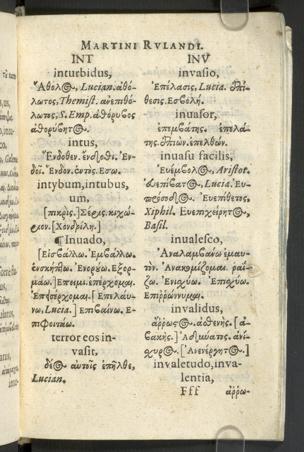 MARTINI RVLANDI.
INT
inturbidus,
Ἄθολος, Lucian. ἀθό-
λωτος, Themist. ἀνεπιθό-
λωτος, S. Emp. ἀθόρυβος
ἀθορύβητος.
intus,
Ἔνδοθεν. ἔνδοθι. Ἐν-
δοῖ. Ἔνδον. ἐντός. Ἔσω.
intybum, intubus,
um,
[πικρίς.] Σέρις. κιχώ-
ριον. [Χονδρίλη.]
¶ Inuado,
[Εἰσβάλλω. Ἐμβάλλω.
ἐνσκήπτω.
Ἔπειμι. ἐπέρχομαι.
Ἐπεξέρχομαι. [Ἐπελαύ-
νω. Lucia. Ἐπιβαίνω. Ἐ-
πιφοιτάω.
terror eos in-
vasit,
δέος αὐτοῖς ἐπῆλθε,
Lucian.
INV
invasio,
Ἐπέλασις, Lucia. ἐπί-
θεσις. Ἐσβολή.
inuasor,
ἐπεμβάτης. ἐπελά-
της. ἐπιών. ἐπελθών.
inuasu facilis,
Εὐέμβολος, Aristot.
εὐεπίβατος, Lucia. Εὐε-
πέσοδος. Εὐεπίθετος,
Xiphil. Εὐεπιχείρητος,
Basil.
inualesco,
Ἀναλαμβάνω ἐμαυ-
τόν. Ἀνακομίζομαι. ῥαΐ-
ζω. Ἐνισχύω. Ἐπισχύω.
Ἐπιρρώννυμαι.
invalidus,
ἄῤῥωστος. ἀσθενής. [ἀ-
βακής.] Ἀδύνατος. ἀνί-
χυρος. [Ἀνενέργητος.]
invaletudo, inva-
lentia,
Fff
ἀῤῥω-